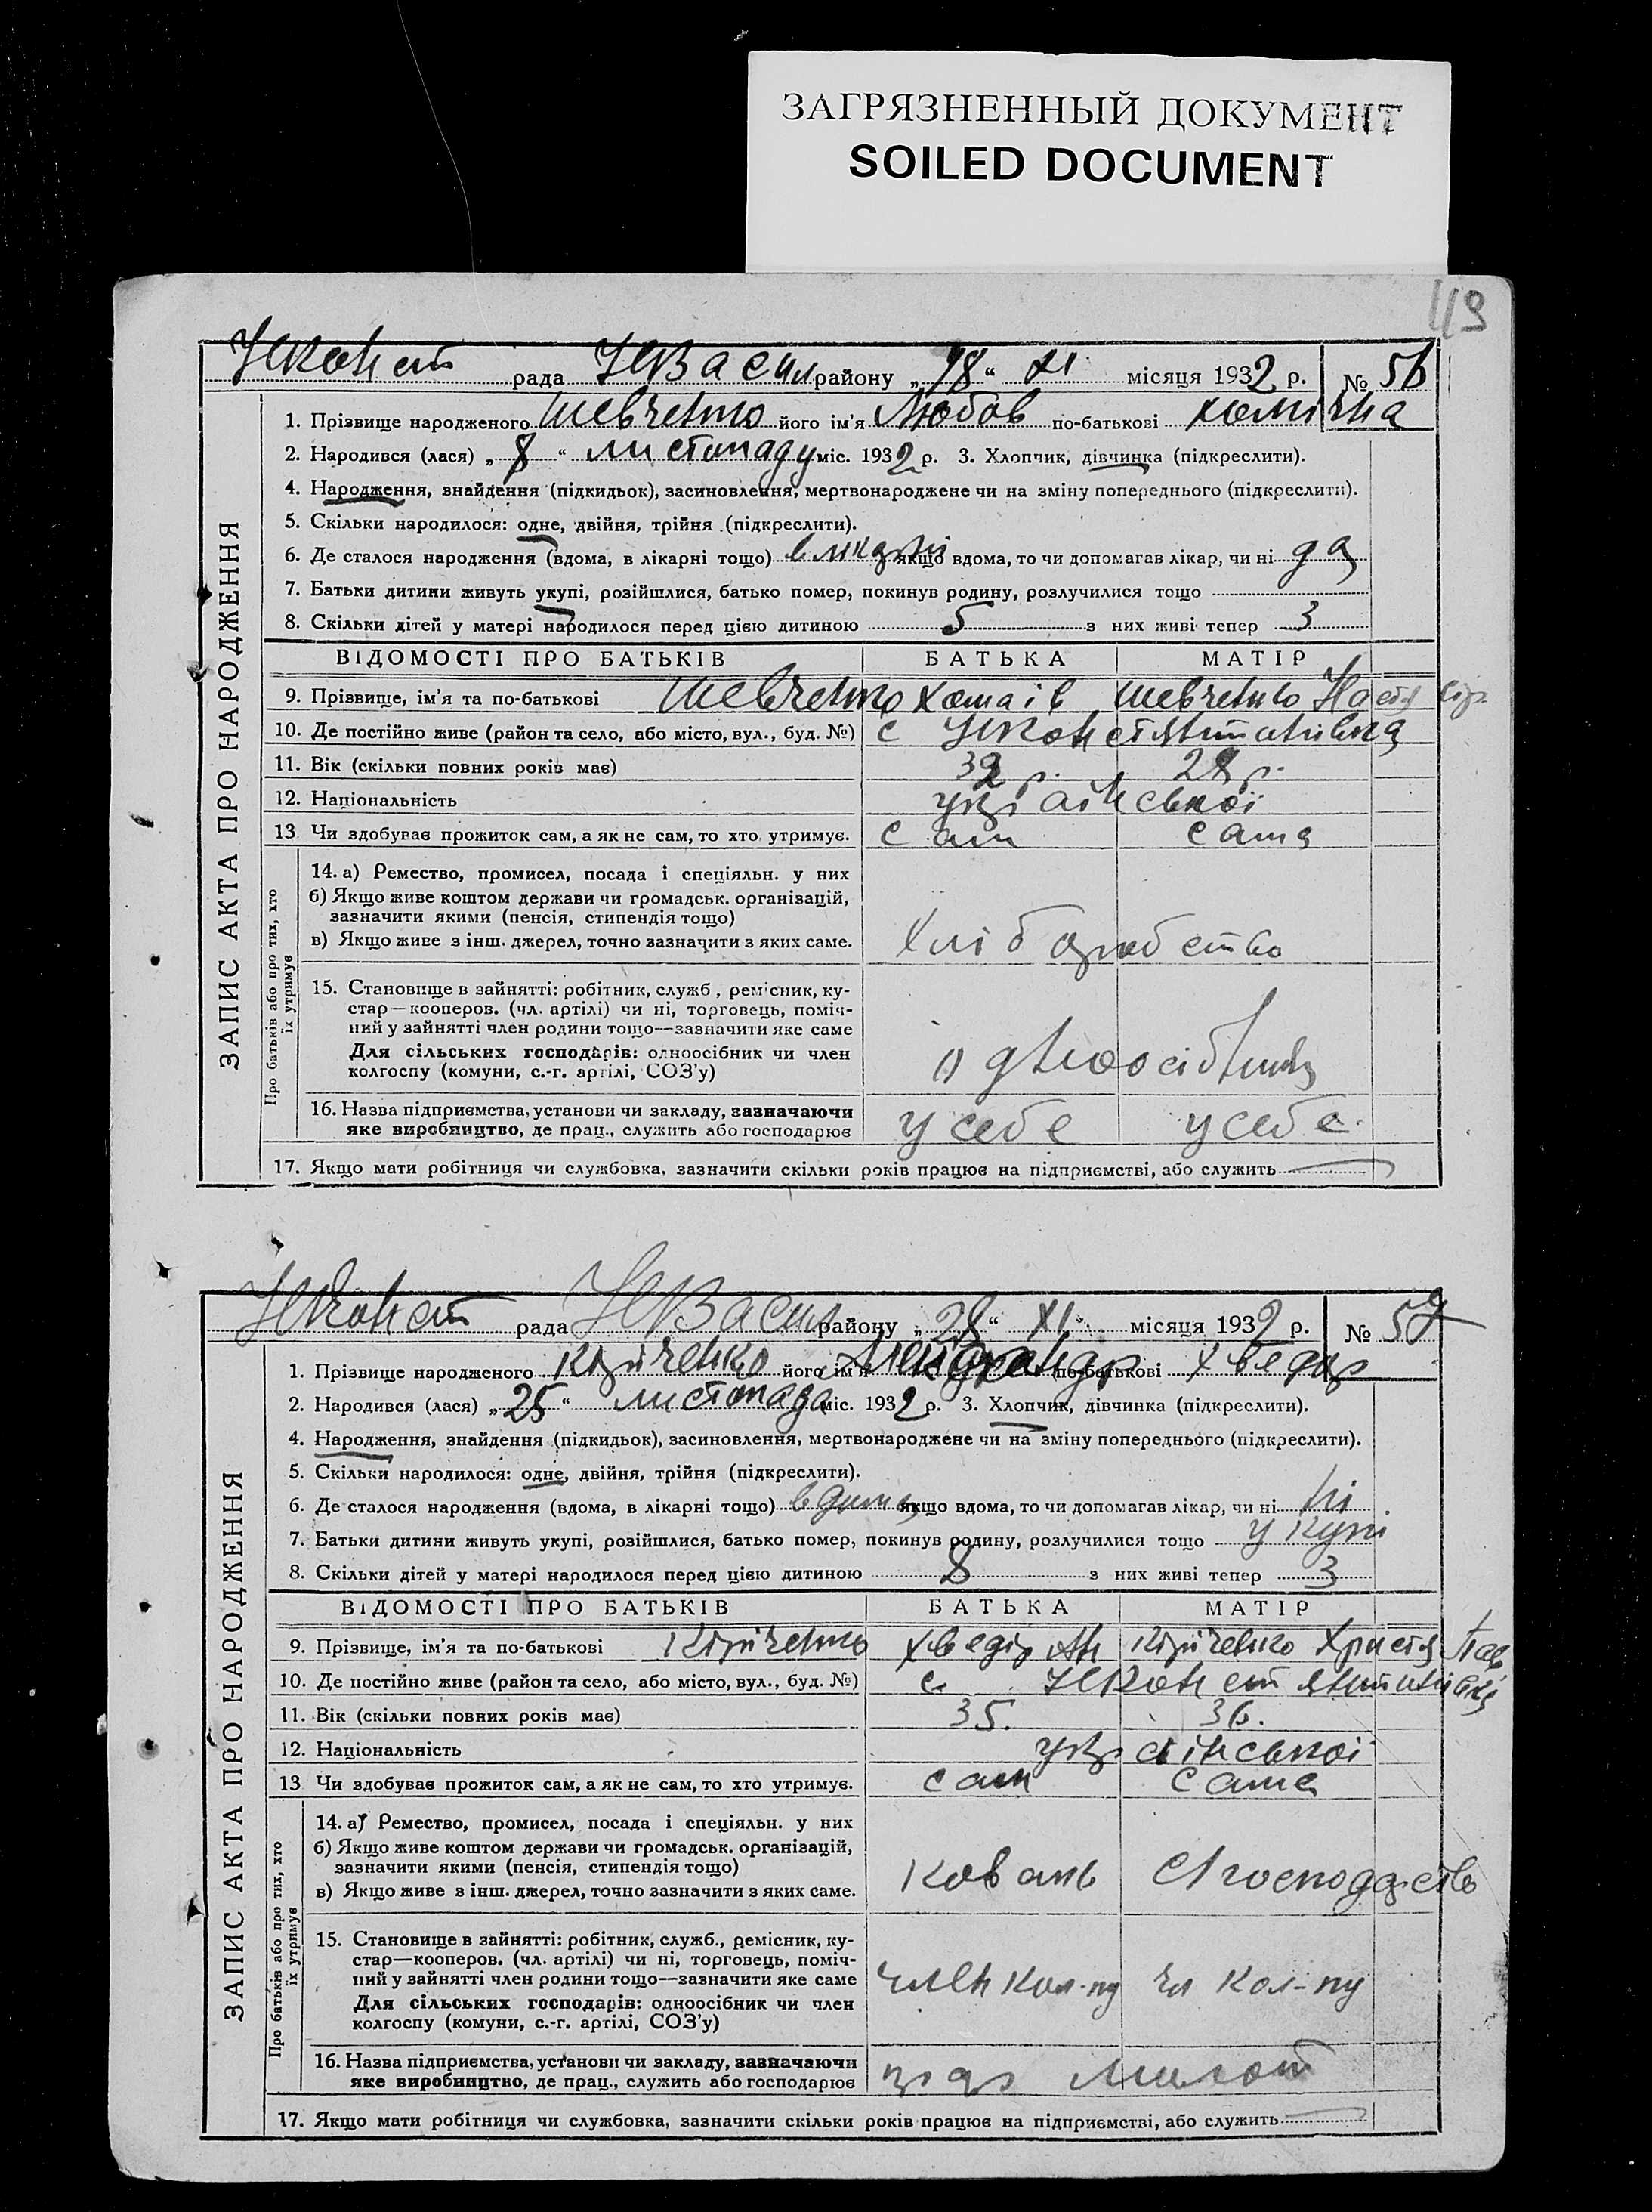 ЗАГРЯЗНЕННЫЙ ДОКУМЕНТ
SOILED DOCUMENT
113
НКонст рада НВасил району „18“ XI місяця 1932 р. № 56
ЗАПИС АКТА ПРО НАРОДЖЕННЯ
1. Прізвище народженого Шевченко його ім'я Любов по-батькові
2. Народився (лася) „8“ листопаду міс. 1932 р. 3. Хлопчик, дівчинка (підкреслити).
4. Народження, знайдення (підкидьок), засиновлення, мертвонароджене чи на зміну попереднього (підкреслити).
5. Скільки народилося: одне, двійня, трійня (підкреслити).
6. Де сталося народження (вдома, в лікарні тощо) в лікарні якщо вдома, то чи допомагав лікар, чи ні да
7. Батьки дитини живуть укупі, розійшлися, батько помер, покинув родину, розлучилися тощо
8. Скільки дітей у матері народилося перед цією дитиною 5 з них живі тепер 3
ВІДОМОСТІ ПРО БАТЬКІВ БАТЬКА МАТІР
9. Прізвище, ім'я та по-батькові Шевченко Хома ів Шевченко Настя
10. Де постійно живе (район та село, або місто, вул., буд. №) с НКонстянтинівка
11. Вік (скільки повних років має) 32 р. 28 р.
12. Національність української
13 Чи здобуває прожиток сам, а як не сам, то хто утримує. сам сама
Про батьків або про тих, хто їх утримує
14. а) Ремество, промисел, посада і спеціяльн. у них
б) Якщо живе коштом держави чи громадськ. організацій,
зазначити якими (пенсія, стипендія тощо)
в) Якщо живе з інш. джерел, точно зазначити з яких саме. хліборобство
15. Становище в зайнятті: робітник, служб, ремісник, ку-
стар—кооперов. (чл. артілі) чи ні, торговець, поміч-
ний у зайнятті член родини тощо—зазначити яке саме
Для сільських господарів: одноосібник чи член
колгоспу (комуни, с.-г. артілі, СОЗ'у) одноосібник
16. Назва підприємства, установи чи закладу, зазначаючи
яке виробництво, де прац., служить або господарює у себе у себе
17. Якщо мати робітниця чи службовка, зазначити скільки років працює на підприємстві, або служить
НКонст рада НВасил району „28“ XI місяця 1932 р. № 57
ЗАПИС АКТА ПРО НАРОДЖЕННЯ
1. Прізвище народженого Кириченко його ім'я Александр по-батькові Хведор
2. Народився (лася) „25“ листопада міс. 1932 р. 3. Хлопчик, дівчинка (підкреслити).
4. Народження, знайдення (підкидьок), засиновлення, мертвонароджене чи на зміну попереднього (підкреслити).
5. Скільки народилося: одне, двійня, трійня (підкреслити).
6. Де сталося народження (вдома, в лікарні тощо) вдома якщо вдома, то чи допомагав лікар, чи ні ні
7. Батьки дитини живуть укупі, розійшлися, батько помер, покинув родину, розлучилися тощо укупі
8. Скільки дітей у матері народилося перед цією дитиною 8 з них живі тепер 3
ВІДОМОСТІ ПРО БАТЬКІВ БАТЬКА МАТІР
9. Прізвище, ім'я та по-батькові Кириченко Хведір Ан Кириченко Христя Пав
10. Де постійно живе (район та село, або місто, вул., буд. №) с. НКонстянтинівка
11. Вік (скільки повних років має) 35. 36.
12. Національність української
13 Чи здобуває прожиток сам, а як не сам, то хто утримує. сам сама
Про батьків або про тих, хто їх утримує
14. а) Ремество, промисел, посада і спеціяльн. у них
б) Якщо живе коштом держави чи громадськ. організацій,
зазначити якими (пенсія, стипендія тощо)
в) Якщо живе з інш. джерел, точно зазначити з яких саме. коваль господарство
15. Становище в зайнятті: робітник, служб., ремісник, ку-
стар—кооперов. (чл. артілі) чи ні, торговець, поміч-
ний у зайнятті член родини тощо—зазначити яке саме
Для сільських господарів: одноосібник чи член
колгоспу (комуни, с.-г. артілі, СОЗ'у) член кол-пу чл кол-пу
16. Назва підприємства, установи чи закладу, зазначаючи
яке виробництво, де прац., служить або господарює
17. Якщо мати робітниця чи службовка, зазначити скільки років працює на підприємстві, або служить